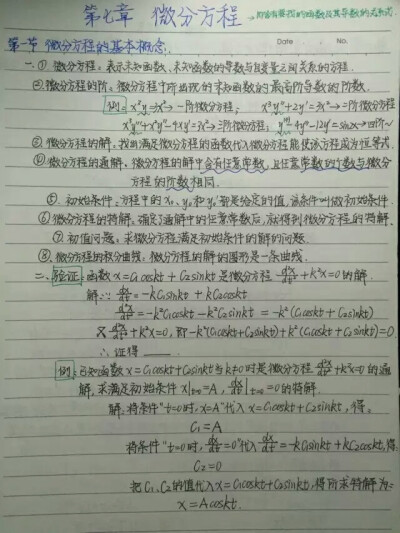 第七章 微分方程 →即含有要找的函数及其导数的关系式.
第一节 微分方程的基本概念. Date No.
一. ① 微分方程: 表示未知函数、未知函数的导数与自变量之间关系的方程.
②微分方程的阶, 微分方程中所出现的未知函数的最高阶导数的阶数.
例: x³y'=3x²→一阶微分方程; x³y''+2y'=3x²→二阶微分方程
→三阶微分方程; →四阶
③微分方程的解, 找出满足微分方程的函数代入微分方程能使该方程成为恒等式.
④微分方程的通解, 微分方程的解中含有任意常数, 且任意常数的个数与微分
方程的阶数相同.
⑤. 初始条件, 方程中的x₀, y₀和y₀'都是给定的值, 该条件叫做初始条件.
⑥微分方程的特解, 确定了通解中的任意常数后, 就得到微分方程的特解.
⑦. 初值问题, 求微分方程满足初始条件的解的问题.
⑧. 微分方程的积分曲线, 微分方程的解的图形是一条曲线.
二、验证: 函数x=C₁coskt+C₂sinkt是微分方程 d²x/dt²+k²x=0的解.
解: ∵ dx/dt=-kC₁sinkt+kC₂coskt
d²x/dt²=-k²C₁coskt-k²C₂sinkt=-k²(C₁coskt+C₂sinkt)
又d²x/dt²+k²x=0, 即-k²(C₁coskt+C₂sinkt)+k²(C₁coskt+C₂sinkt)=0
∴ 证得
例: 已知函数x=C₁coskt+C₂sinkt当k≠0时是微分方程d²x/dt²+k²x=0的通
解, 求满足初始条件x|t=0=A, dx/dt|t=0=0的特解.
解: 将条件"t=0时, x=A"代入x=C₁coskt+C₂sinkt, 得,
C₁=A
将条件"t=0时, dx/dt=0"代入dx/dt=-kC₁sinkt+kC₂coskt, 得
C₂=0
把C₁、C₂的值代入x=C₁coskt+C₂sinkt, 得所求特解为:
x=Acoskt.